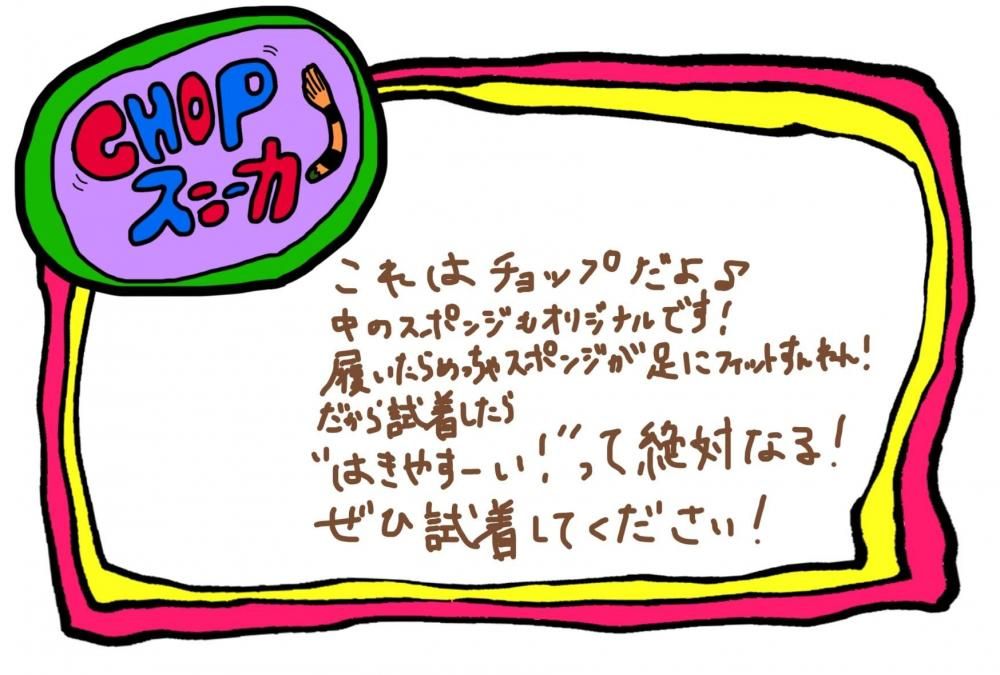 CHOP
スニーカ
これはチョップだよ♪
中のスポンジもオリジナルです!
履いたらめっちゃスポンジが足にフィットすんねん!
だから試着したら
“はきやすーい!”って絶対なる!
ぜひ試着してください!